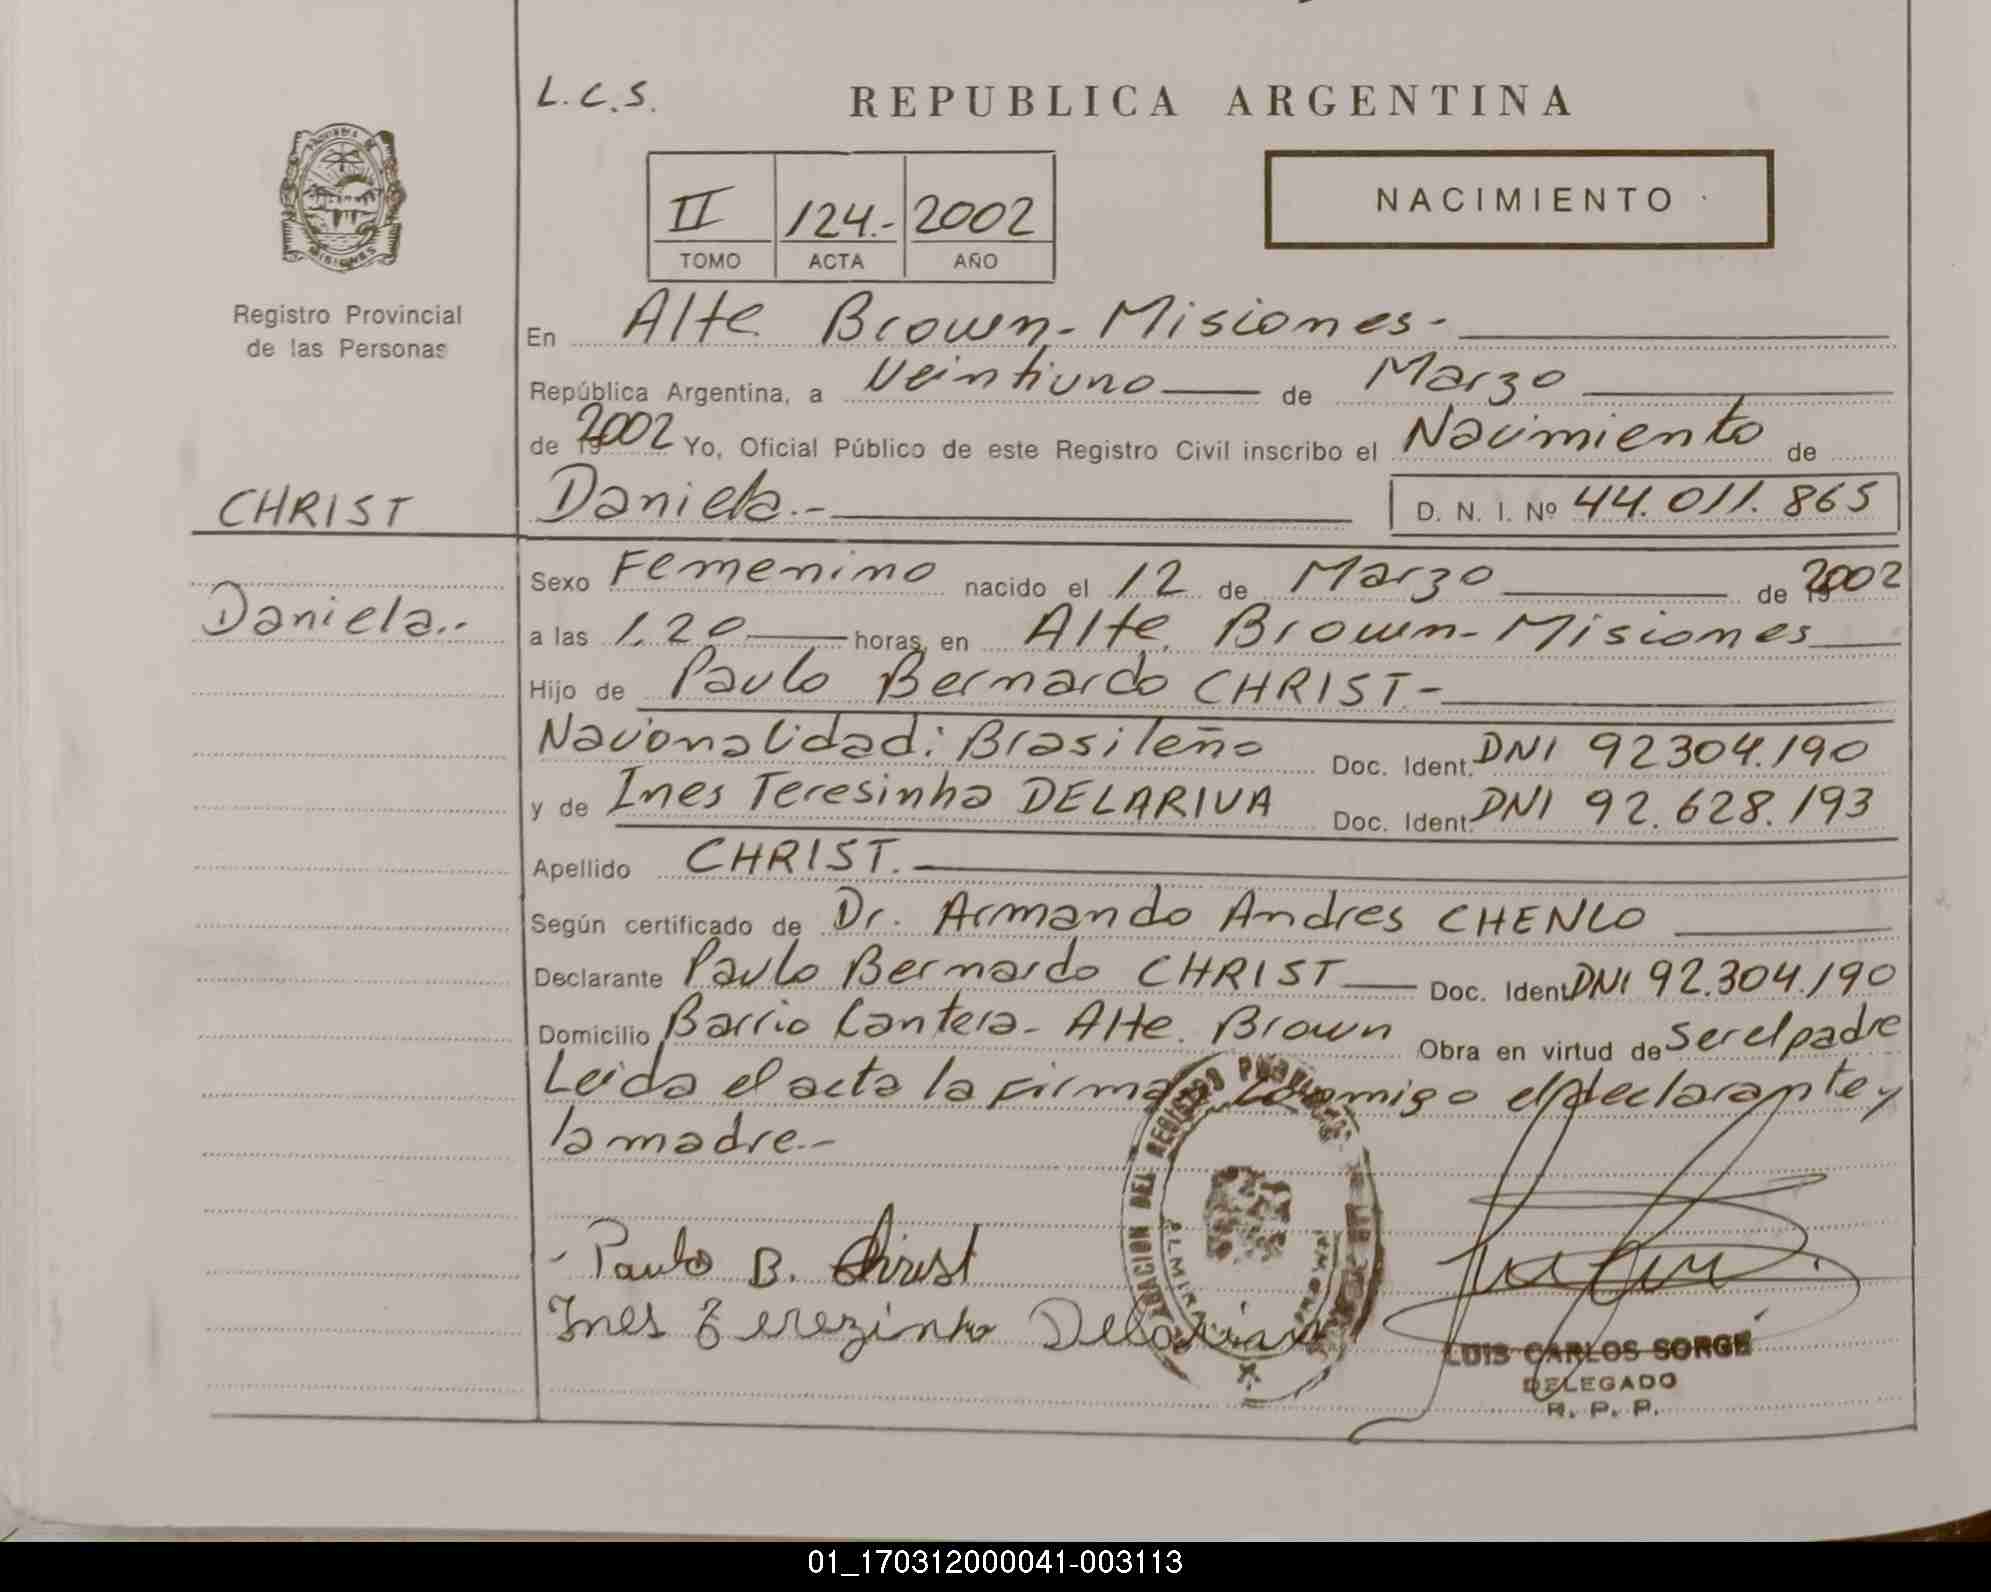 L.C.S.
REPUBLICA ARGENTINA
PROVINCIA DE
MISIONES
Registro Provincial
de las Personas
II 124.- 2002
TOMO ACTA AÑO
NACIMIENTO
En Alte. Brown - Misiones -
República Argentina, a Veintiuno de Marzo
de 2002 Yo, Oficial Público de este Registro Civil inscribo el Nacimiento de
CHRIST
Daniela.- D. N. I. Nº 44.011.865
Daniela..
Sexo Femenino nacido el 12 de Marzo de 2002
a las 1.20 horas, en Alte. Brown - Misiones
Hijo de Paulo Bernardo CHRIST.-
Nacionalidad: Brasileño Doc. Ident. DNI 92304.190
y de Ines Teresinha DELARIVA Doc. Ident. DNI 92.628.193
Apellido CHRIST.
Según certificado de Dr. Armando Andres CHENLO
Declarante Paulo Bernardo CHRIST Doc. Ident. DNI 92.304.190
Domicilio Barrio Cantera - Alte. Brown Obra en virtud de Ser el padre
Leida el acta la firma conmigo el declarante y
la madre.-
Paulo B. Christ
Ines Terezinha Delariva
DEL REGISTRO
ALMIRANTE BROWN
LUIS CARLOS SORGE
DELEGADO
R. P. P.
01_170312000041-003113